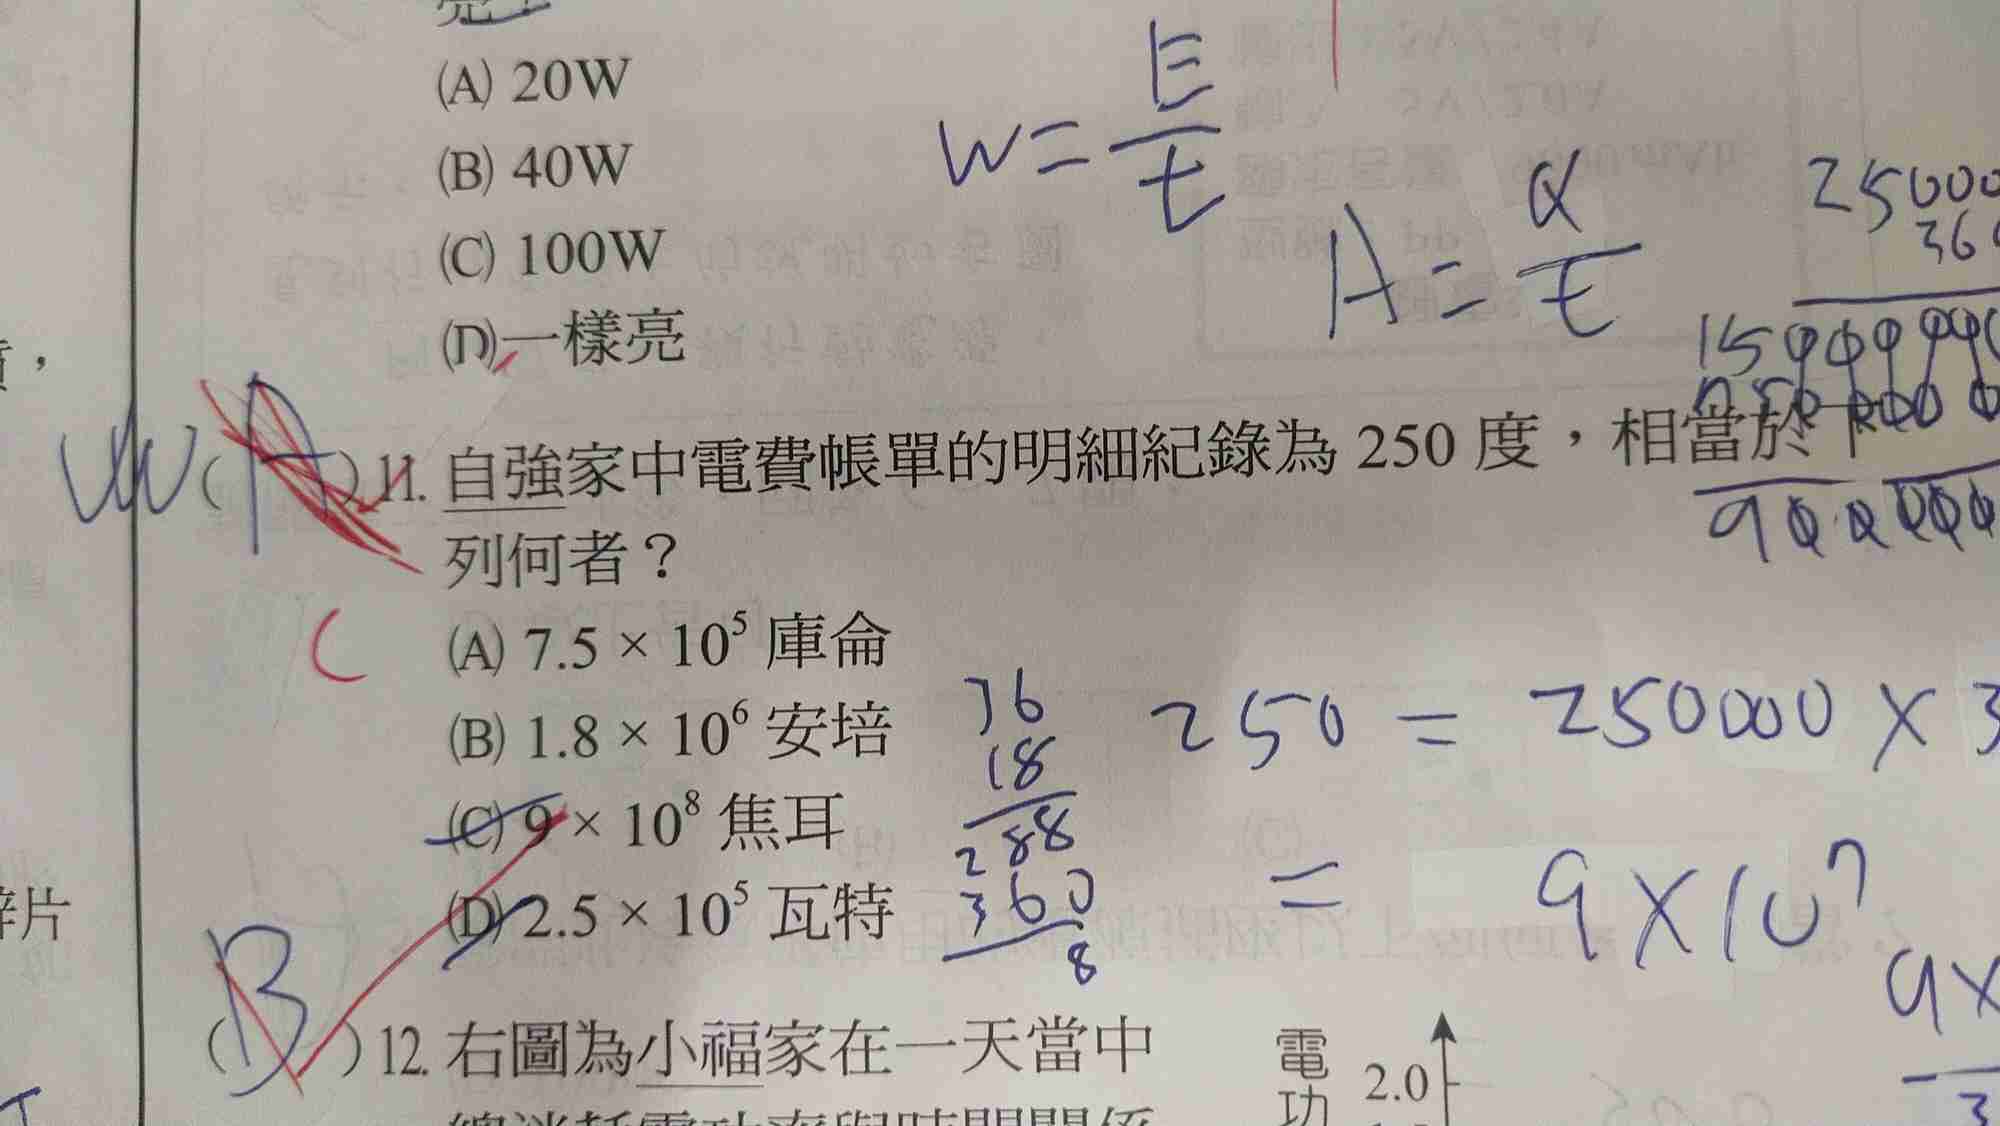 (A) 20W
(B) 40W
(C) 100W
(D) 一樣亮
W = E/t
A = Q/t
25000
36
11. 自強家中電費帳單的明細紀錄為 250 度，相當於下
列何者？
C
(A) 7.5 × 10⁵ 庫侖
(B) 1.8 × 10⁶ 安培
(C) 9 × 10⁸ 焦耳
(D) 2.5 × 10⁵ 瓦特
36
18
288
360
8
250 = 250000 × 3
= 9 × 10⁷
9×
3
(B) 12. 右圖為小福家在一天當中
電功
2.0